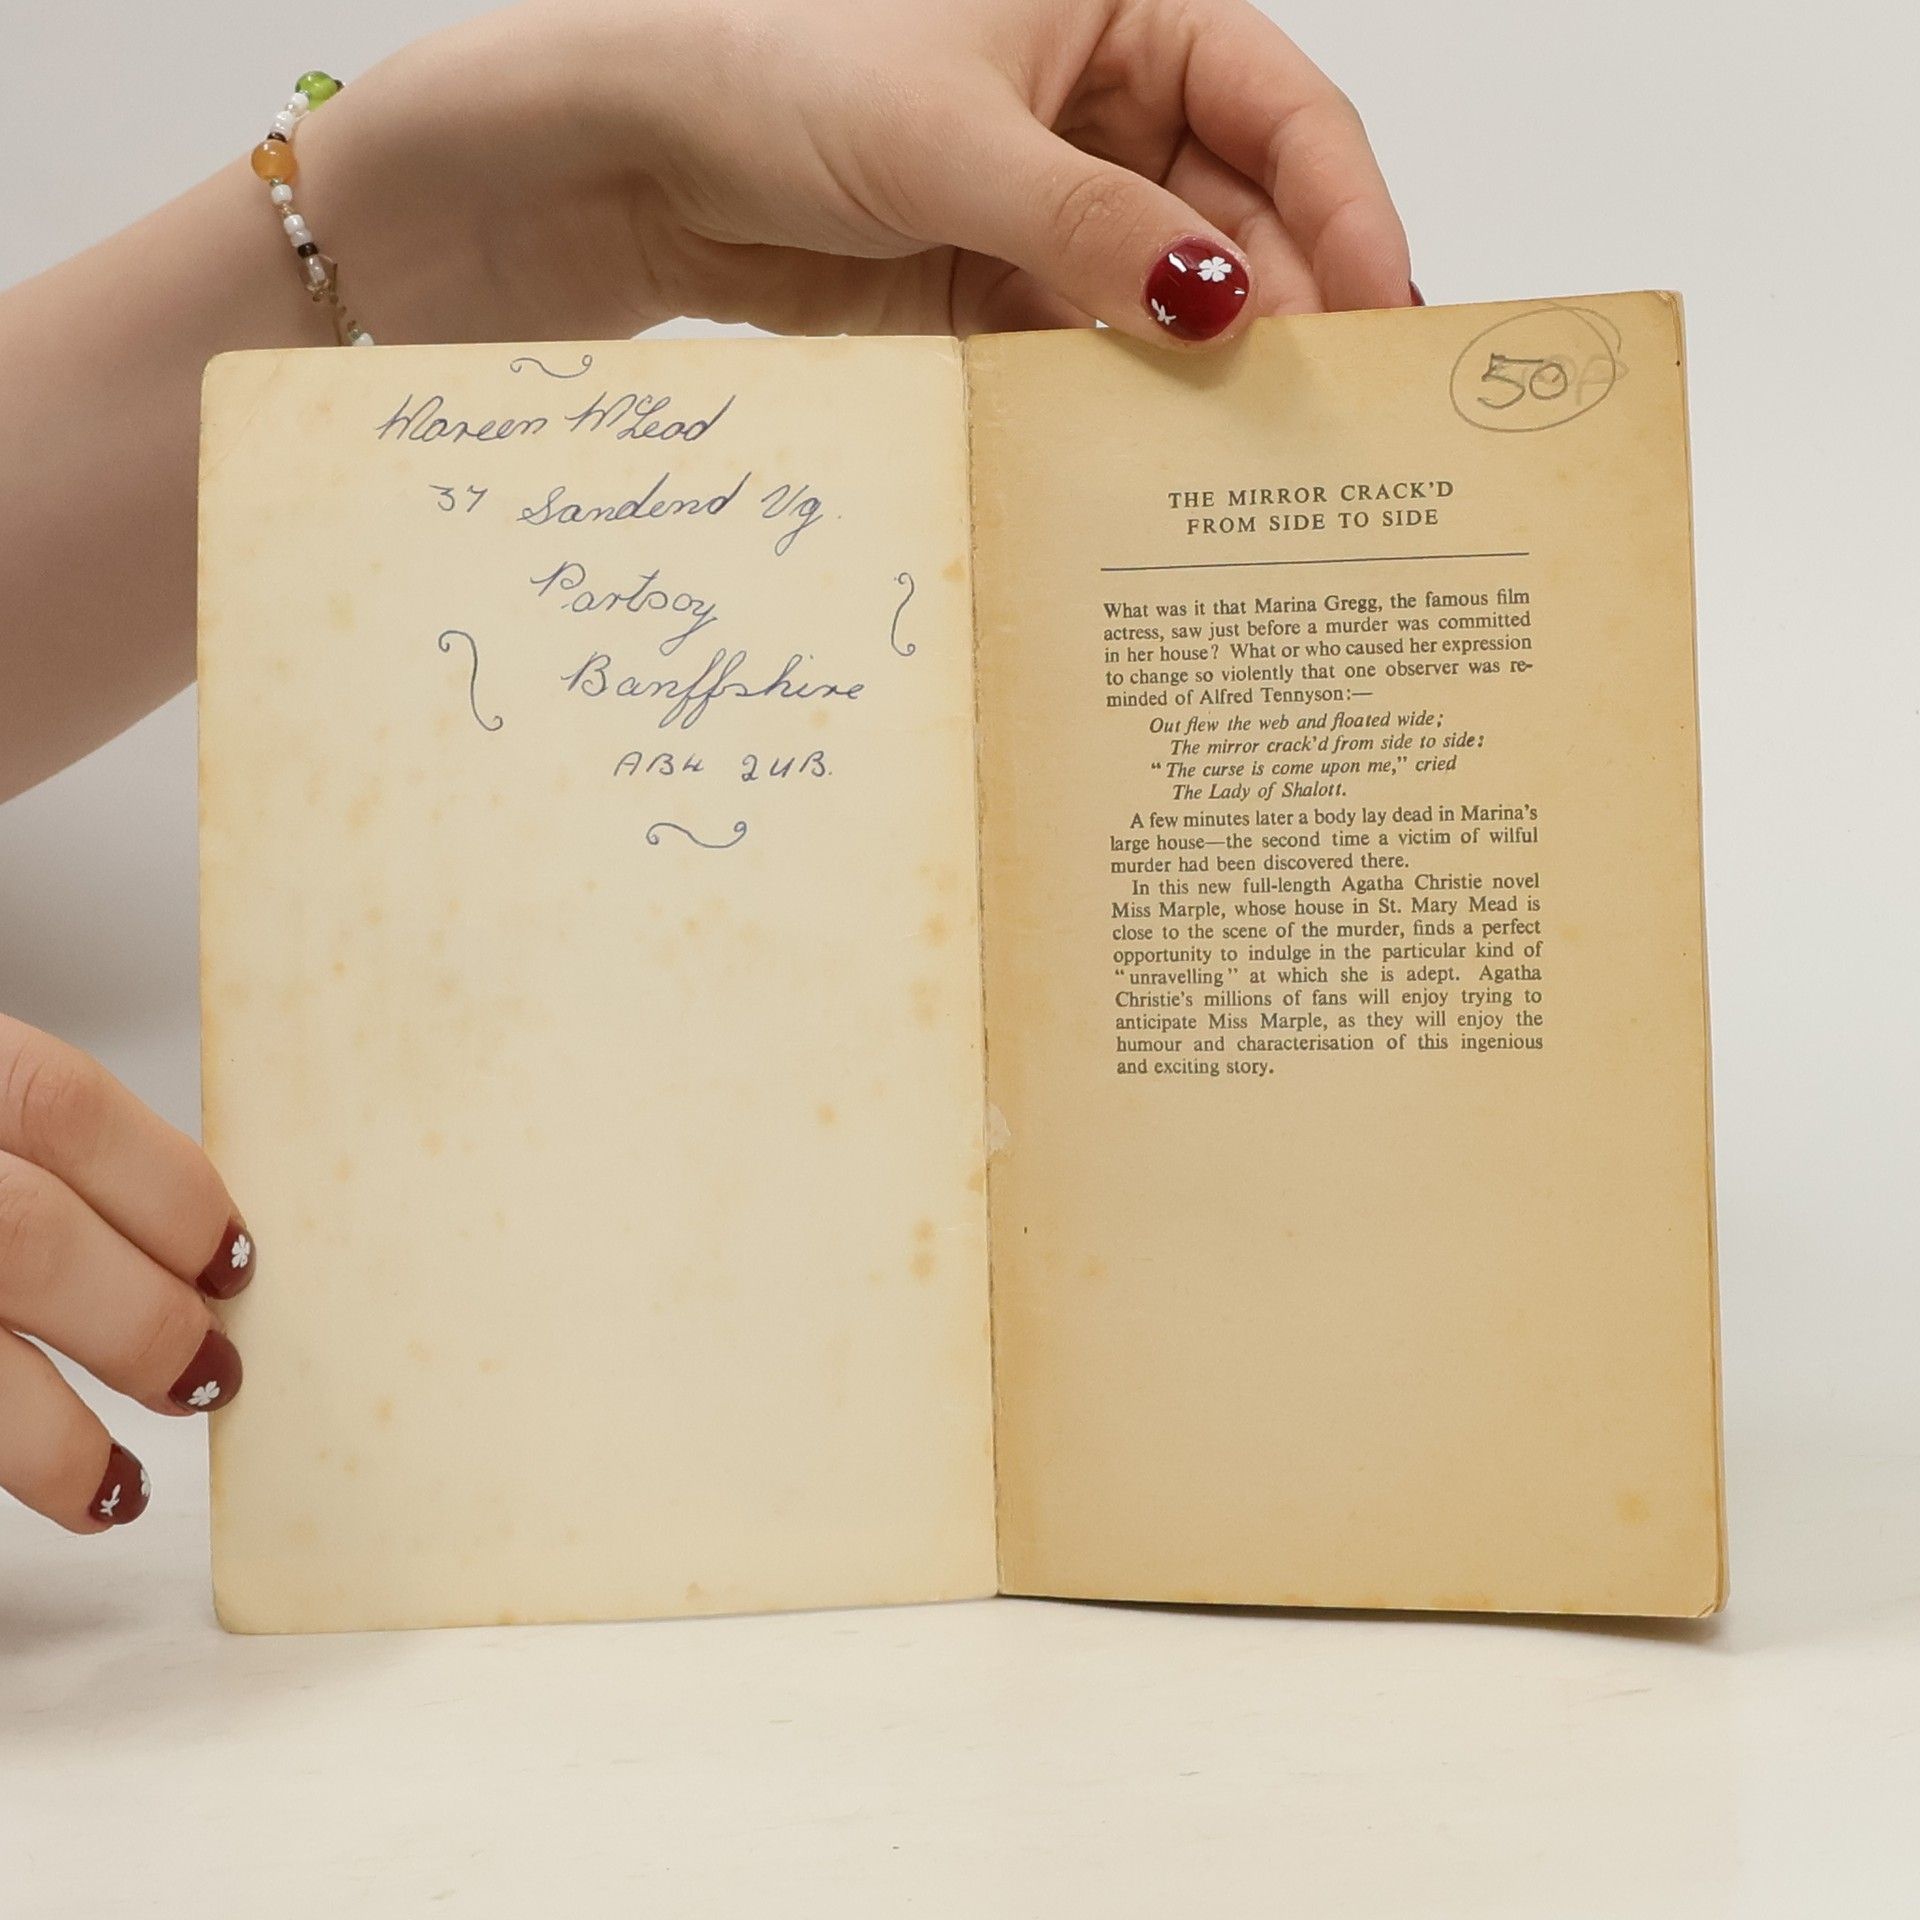 Moreen McLeod
37 Sandend Vg.
Portsoy
Banffshire
AB4 2UB.
50
THE MIRROR CRACK'D
FROM SIDE TO SIDE
What was it that Marina Gregg, the famous film
actress, saw just before a murder was committed
in her house? What or who caused her expression
to change so violently that one observer was re-
minded of Alfred Tennyson:—
Out flew the web and floated wide;
The mirror crack'd from side to side:
"The curse is come upon me," cried
The Lady of Shalott.
A few minutes later a body lay dead in Marina's
large house—the second time a victim of wilful
murder had been discovered there.
In this new full-length Agatha Christie novel
Miss Marple, whose house in St. Mary Mead is
close to the scene of the murder, finds a perfect
opportunity to indulge in the particular kind of
"unravelling" at which she is adept. Agatha
Christie's millions of fans will enjoy trying to
anticipate Miss Marple, as they will enjoy the
humour and characterisation of this ingenious
and exciting story.